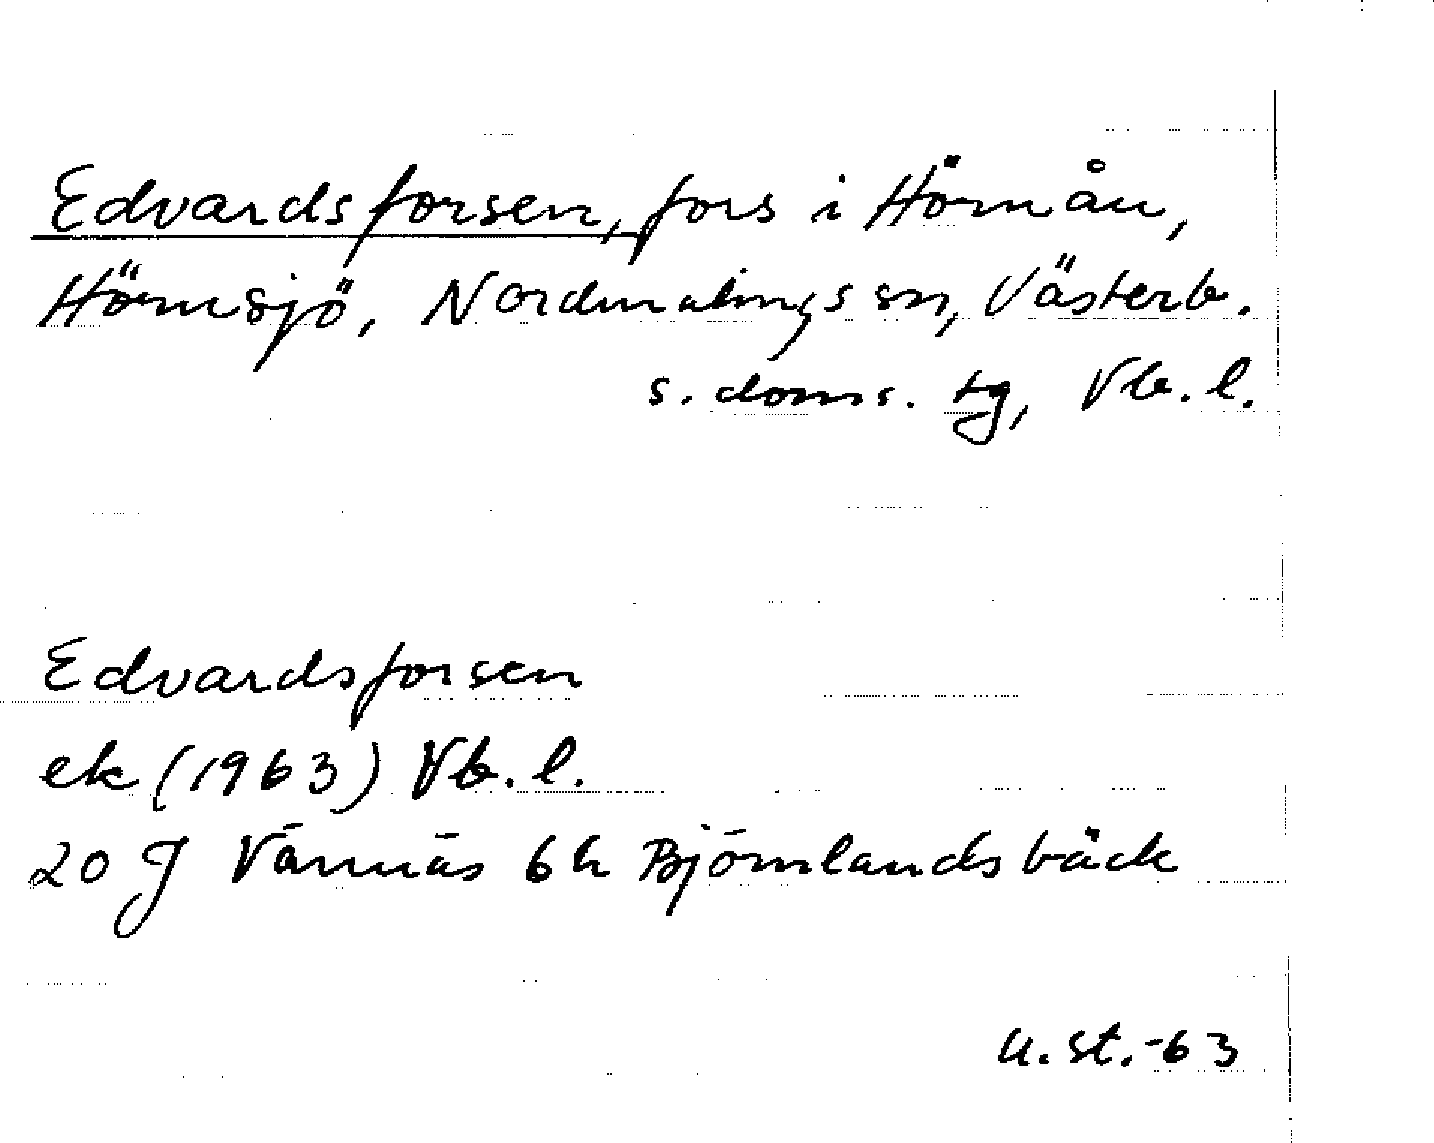 Edvardsforsen, fors i Hörnån,
Hörnsjö, Nordmalings sn, Västerb.
s. doms. tg, Vb. l.
Edvardsforsen
ek (1963) Vb. l.
20 J Värnäs 6h Björnlandsbäck
u. st. -63